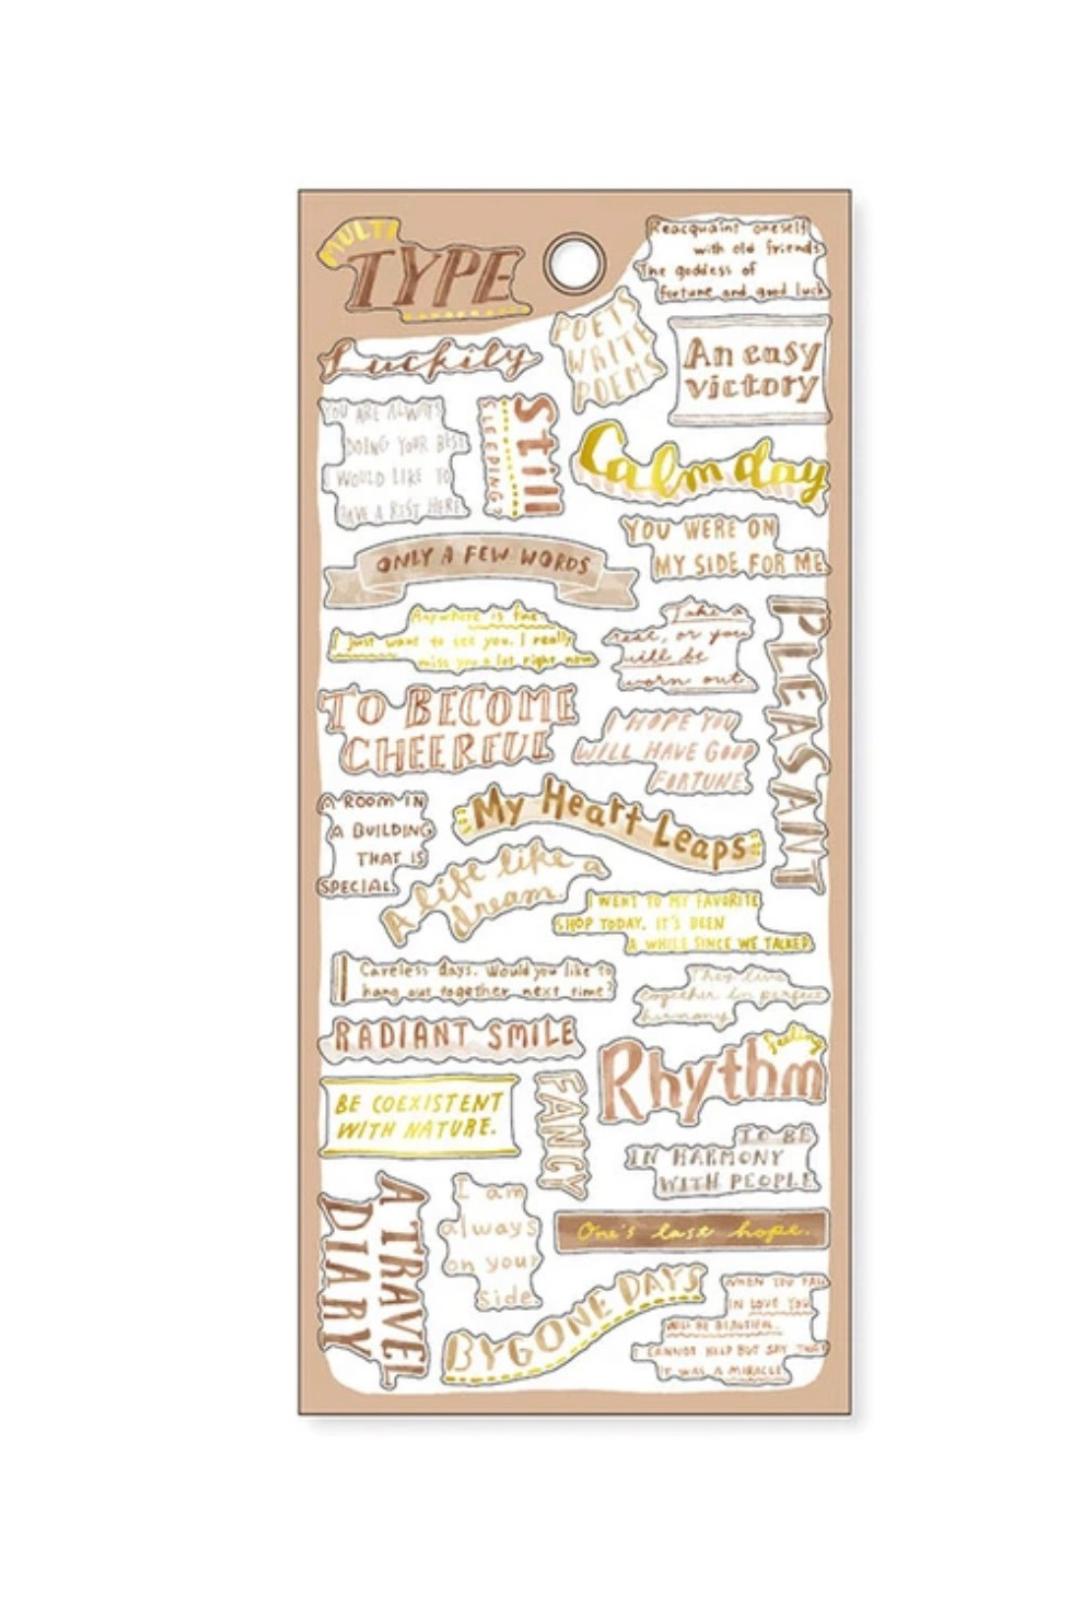 MULTI
TYPE
Reacquaint oneself
with old friends
The goddess of
fortune and good luck
POETS
WRITE
POEMS
An easy
victory
Luckily
YOU ARE ALWAYS
DOING YOUR BEST
I WOULD LIKE TO
HAVE A REST HERE
Still
SLEEPING?
Calm day
YOU WERE ON
MY SIDE FOR ME
ONLY A FEW WORDS
Anywhere is fine.
I just want to see you. I really
miss you a lot right now.
Take a
rest, or you
will be
worn out.
PLEASANT
TO BECOME
CHEERFUL
I HOPE YOU
WILL HAVE GOOD
FORTUNE
A ROOM IN
A BUILDING
THAT IS
SPECIAL.
My Heart Leaps
A life like a
dream.
I WENT TO MY FAVORITE
SHOP TODAY. IT'S BEEN
A WHILE SINCE WE TALKED.
Careless days. Would you like to
hang out together next time?
They live
together in perfect
harmony.
RADIANT SMILE
feeling
Rhythm
BE COEXISTENT
WITH NATURE.
FANCY
TO BE
IN HARMONY
WITH PEOPLE
A TRAVEL
DIARY
I am
always
on your
side.
One's last hope.
BYGONE DAYS
WHEN YOU FALL
IN LOVE YOU
WILL BE BEAUTIFUL.
I CANNOT HELP BUT SAY THAT
IT WAS A MIRACLE